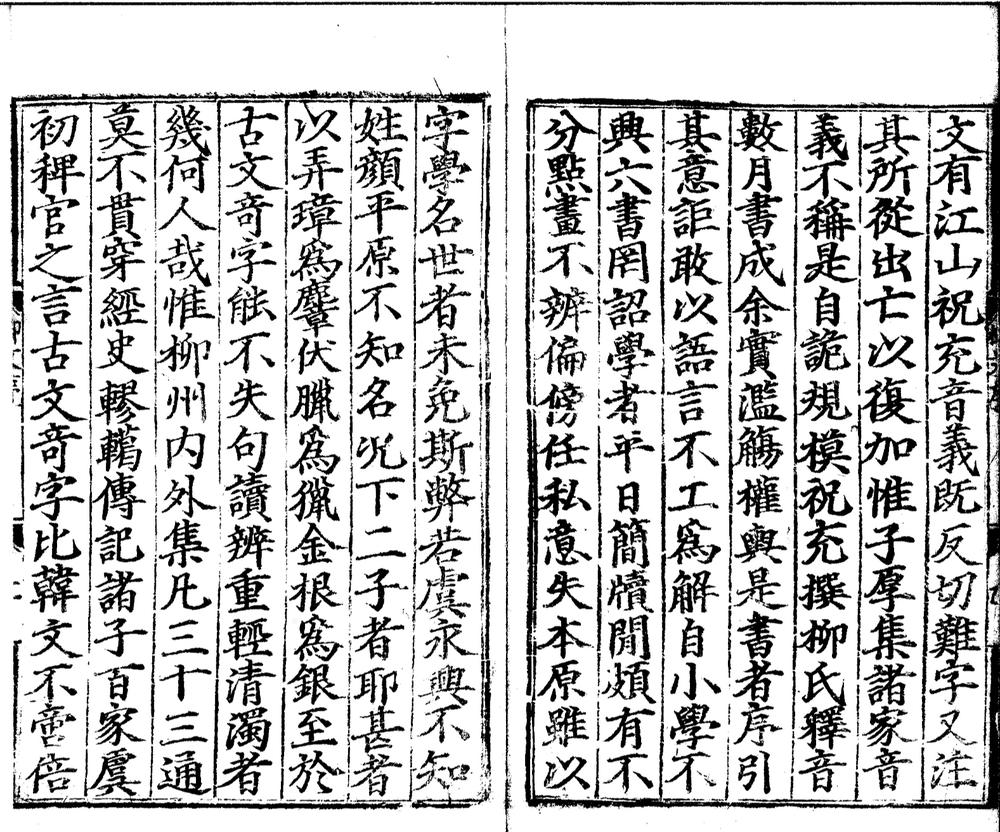 文有江山祝充音義既反切難字又注
其所從出亡以復加惟子厚集諸家音
義不稱是自詭規模祝充撰柳氏釋音
數月書成余實濫觴權輿是書者序引
其意詎敢以語言不工為解自小學不
興六書罔詔學者平日簡牘間頗有不
分點畫不辨偏傍任私意失本原雖以
字學名世者未免斯弊若虞永興不知
姓顏平原不知名況下二子者耶甚者
以弄璋為麞伏臘為獵金根為銀至於
古文奇字能不失句讀辨重輕清濁者
幾何人哉惟柳州內外集凡三十三通
莫不貫穿經史轇轕傳記諸子百家虞
初稗官之言古文奇字比韓文不啻倍